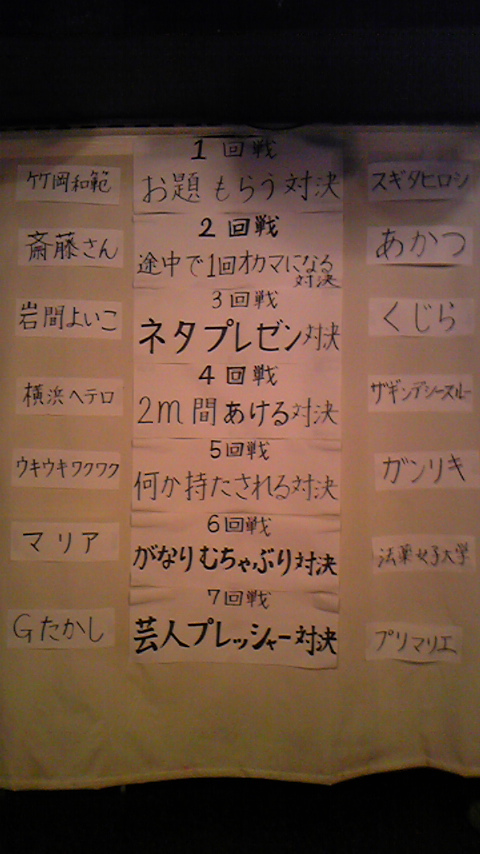 1回戦
竹岡和範
お題もらう対決
スギタヒロシ
2回戦
斎藤さん
途中で1回オカマになる
対決
あかつ
3回戦
岩間よいこ
ネタプレゼン対決
くじら
4回戦
横浜ヘテロ
2m間あける対決
ザギンデシースルー
5回戦
ウキウキワクワク
何か持たされる対決
ガンリキ
6回戦
マリア
がなりむちゃぶり対決
法薬女子大学
7回戦
Gたかし
芸人プレッシャー対決
プリマリエ